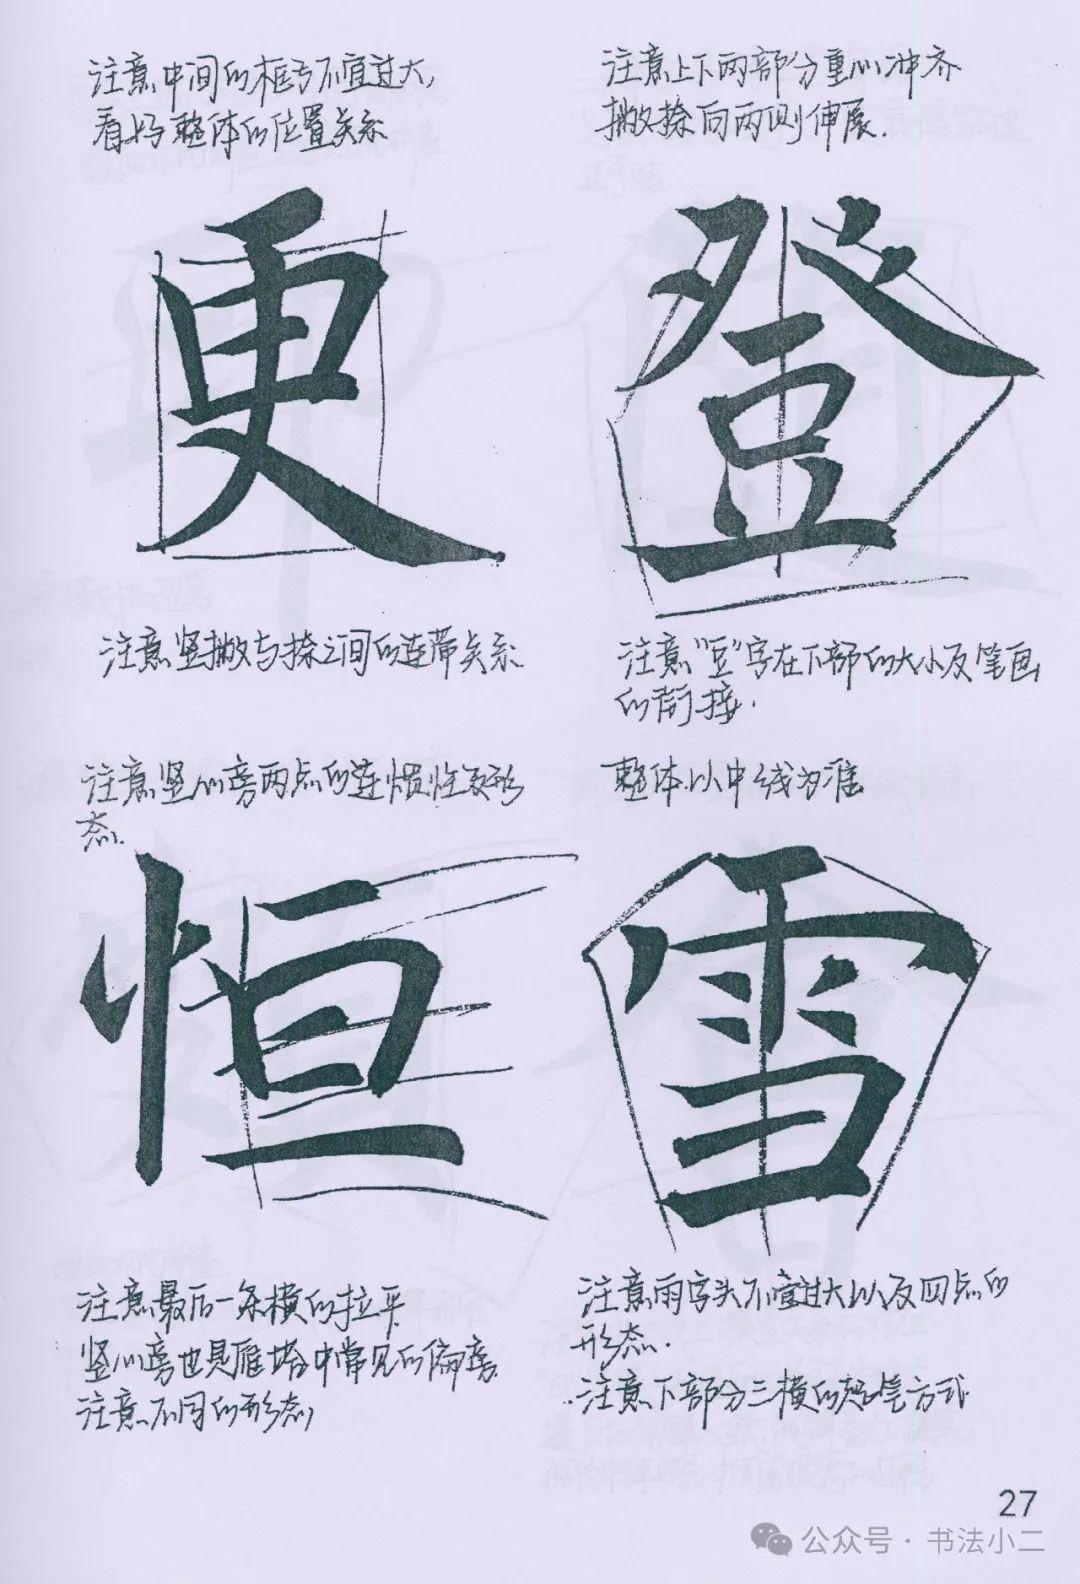 注意中间的框弓不宜过大,
看好整体的位置关系
更
注意竖撇与捺之间的连带关系.
注意上下两部分重心冲齐
撇捺向两侧伸展.
登
注意"豆"字在下部的大小及笔画
的衔接.
注意竖心旁两点的连惯性及形
态.
恒
注意最后一条横的拉平
竖心旁也是雁塔中常见的偏旁.
注意不同的形态
整体以中线为准
雪
注意雨字头不宜过大以及四点的
形态.
.注意下部分三横的起笔方式
27
公众号·书法小二